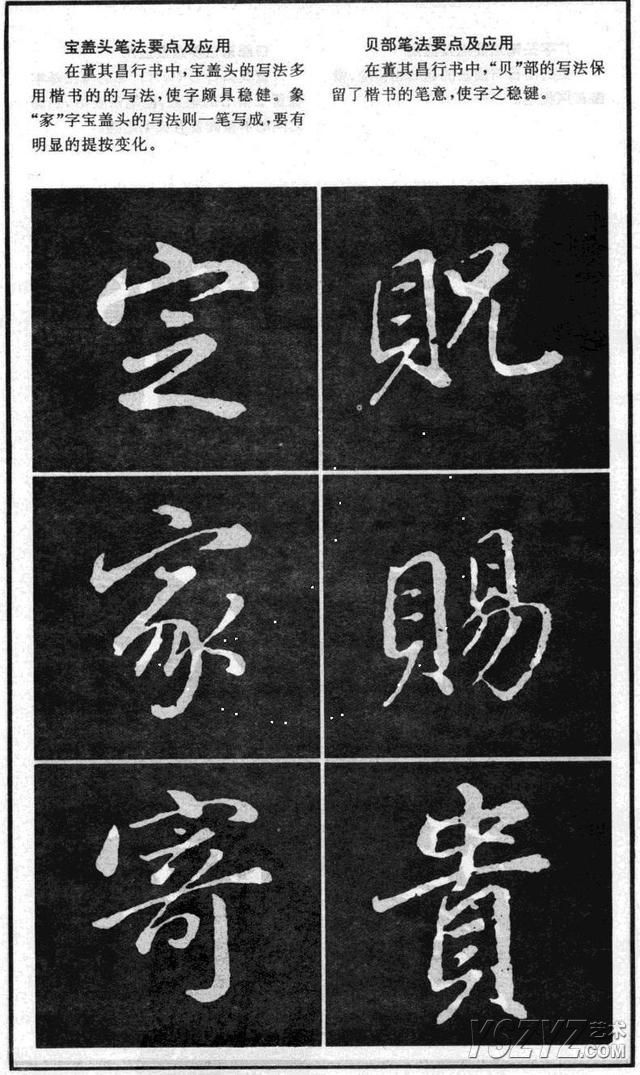 宝盖头笔法要点及应用
在董其昌行书中，宝盖头的写法多
用楷书的的写法，使字颇具稳健。象
“家”字宝盖头的写法则一笔写成，要有
明显的提按变化。
贝部笔法要点及应用
在董其昌行书中，“贝”部的写法保
留了楷书的笔意，使字之稳键。
定
家
寄
貺
賜
貴
YSZYZ艺术
.COM